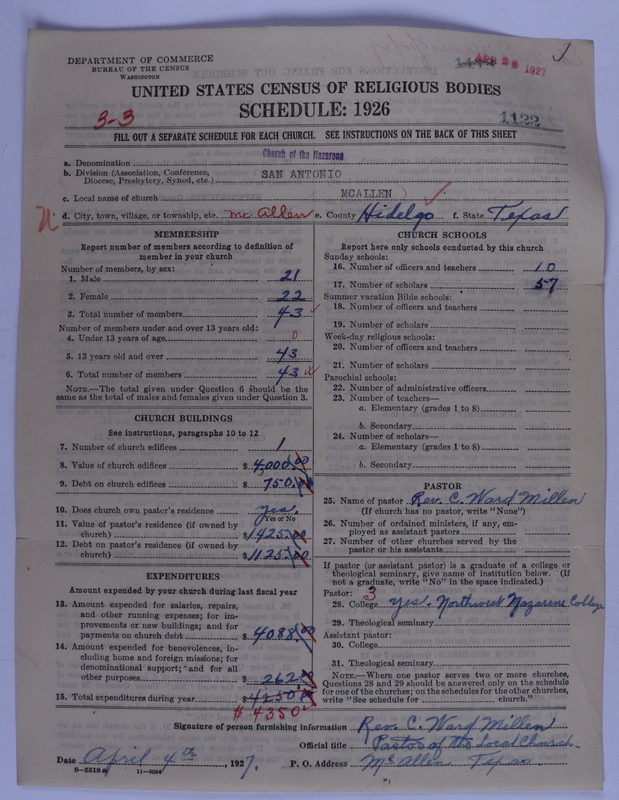 DEPARTMENT OF COMMERCE
BUREAU OF THE CENSUS
WASHINGTON
APR 28 1927
UNITED STATES CENSUS OF RELIGIOUS BODIES
SCHEDULE: 1926
3-3
1122
FILL OUT A SEPARATE SCHEDULE FOR EACH CHURCH. SEE INSTRUCTIONS ON THE BACK OF THIS SHEET
a. Denomination Church of the Nazarene
b. Division (Association, Conference, Diocese, Presbytery, Synod, etc.) SAN ANTONIO
c. Local name of church MCALLEN
d. City, town, village, or township, etc. McAllen e. County Hidelgo f. State Texas
MEMBERSHIP
Report number of members according to definition of
member in your church
Number of members, by sex:
1. Male 21
2. Female 22
3. Total number of members 43
Number of members under and over 13 years old:
4. Under 13 years of age 0
5. 13 years old and over 43
6. Total number of members 43
NOTE.—The total given under Question 6 should be the
same as the total of males and females given under Question 3.
CHURCH BUILDINGS
See instructions, paragraphs 10 to 12
7. Number of church edifices 1
8. Value of church edifices $4,000.00
9. Debt on church edifices $750.00
10. Does church own pastor's residence yes.
Yes or No
11. Value of pastor's residence (if owned by
church) $1425.00
12. Debt on pastor's residence (if owned by
church) $1125.00
EXPENDITURES
Amount expended by your church during last fiscal year
13. Amount expended for salaries, repairs,
and other running expenses; for im-
provements or new buildings; and for
payments on church debt $4088.00
14. Amount expended for benevolences, in-
cluding home and foreign missions; for
denominational support; and for all
other purposes $262.00
15. Total expenditures during year $4250.00
$4350
CHURCH SCHOOLS
Report here only schools conducted by this church
Sunday schools:
16. Number of officers and teachers 10
17. Number of scholars 57
Summer vacation Bible schools:
18. Number of officers and teachers
19. Number of scholars
Week-day religious schools:
20. Number of officers and teachers
21. Number of scholars
Parochial schools:
22. Number of administrative officers
23. Number of teachers—
a. Elementary (grades 1 to 8)
b. Secondary
24. Number of scholars—
a. Elementary (grades 1 to 8)
b. Secondary
PASTOR
25. Name of pastor Rev. C. Ward Millen
(If church has no pastor, write "None")
26. Number of ordained ministers, if any, em-
ployed as assistant pastors
27. Number of other churches served by the
pastor or his assistants
If pastor (or assistant pastor) is a graduate of a college or
theological seminary, give name of institution below. (If
not a graduate, write "No" in the space indicated.)
Pastor: 3
28. College yes. Northwest Nazarene College
29. Theological seminary
Assistant pastor:
30. College
31. Theological seminary
NOTE.—Where one pastor serves two or more churches,
Questions 28 and 29 should be answered only on the schedule
for one of the churches; on the schedules for the other churches,
write "See schedule for church."
Signature of person furnishing information Rev. C. Ward Millen
Official title Pastor of the Local Church.
Date April 4th, 1927. P. O. Address McAllen Texas
8-5518a 11-9054